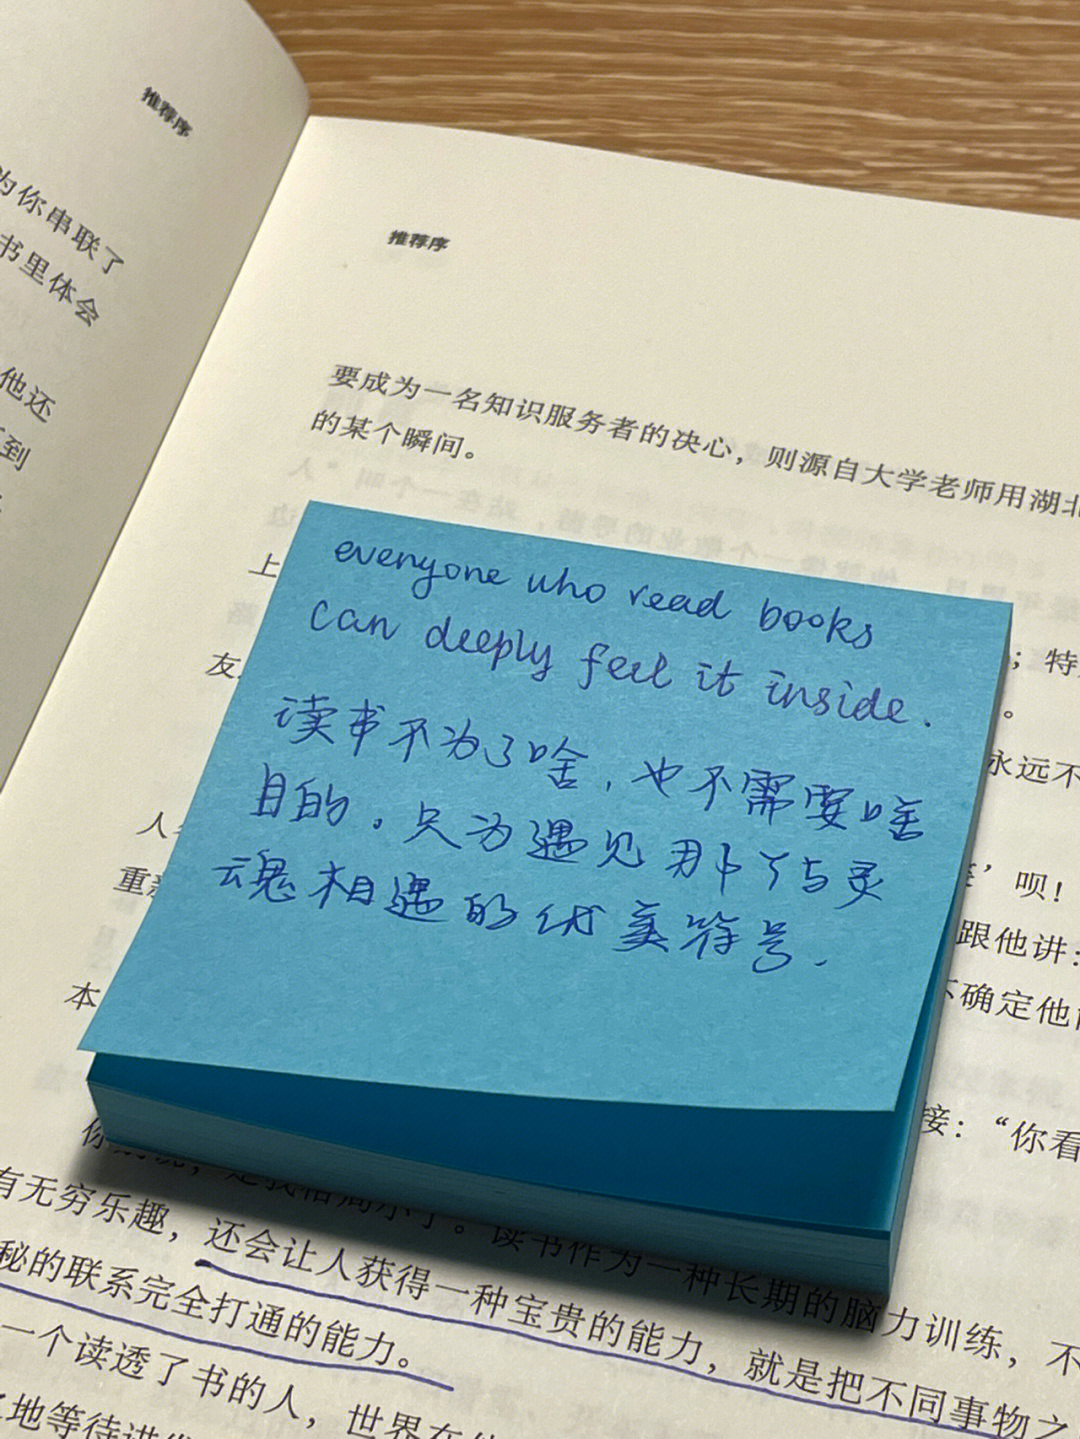 推荐序
为你串联了
书里体会
他还
到
推荐序
要成为一名知识服务者的决心，则源自大学老师用湖北
的某个瞬间。
上
；特
友
。
永远不
人
’呗！
重
跟他讲：
不确定他
本
接：“你看
everyone who read books
can deeply feel it inside.
读书不为了啥，也不需要啥
目的。只为遇见那个与灵
魂相遇的优美符号.
你
。读书作为一种长期的脑力训练，不
有无穷乐趣，还会让人获得一种宝贵的能力，就是把不同事物之
秘的联系完全打通的能力。
一个读透了书的人，世界在
地等待